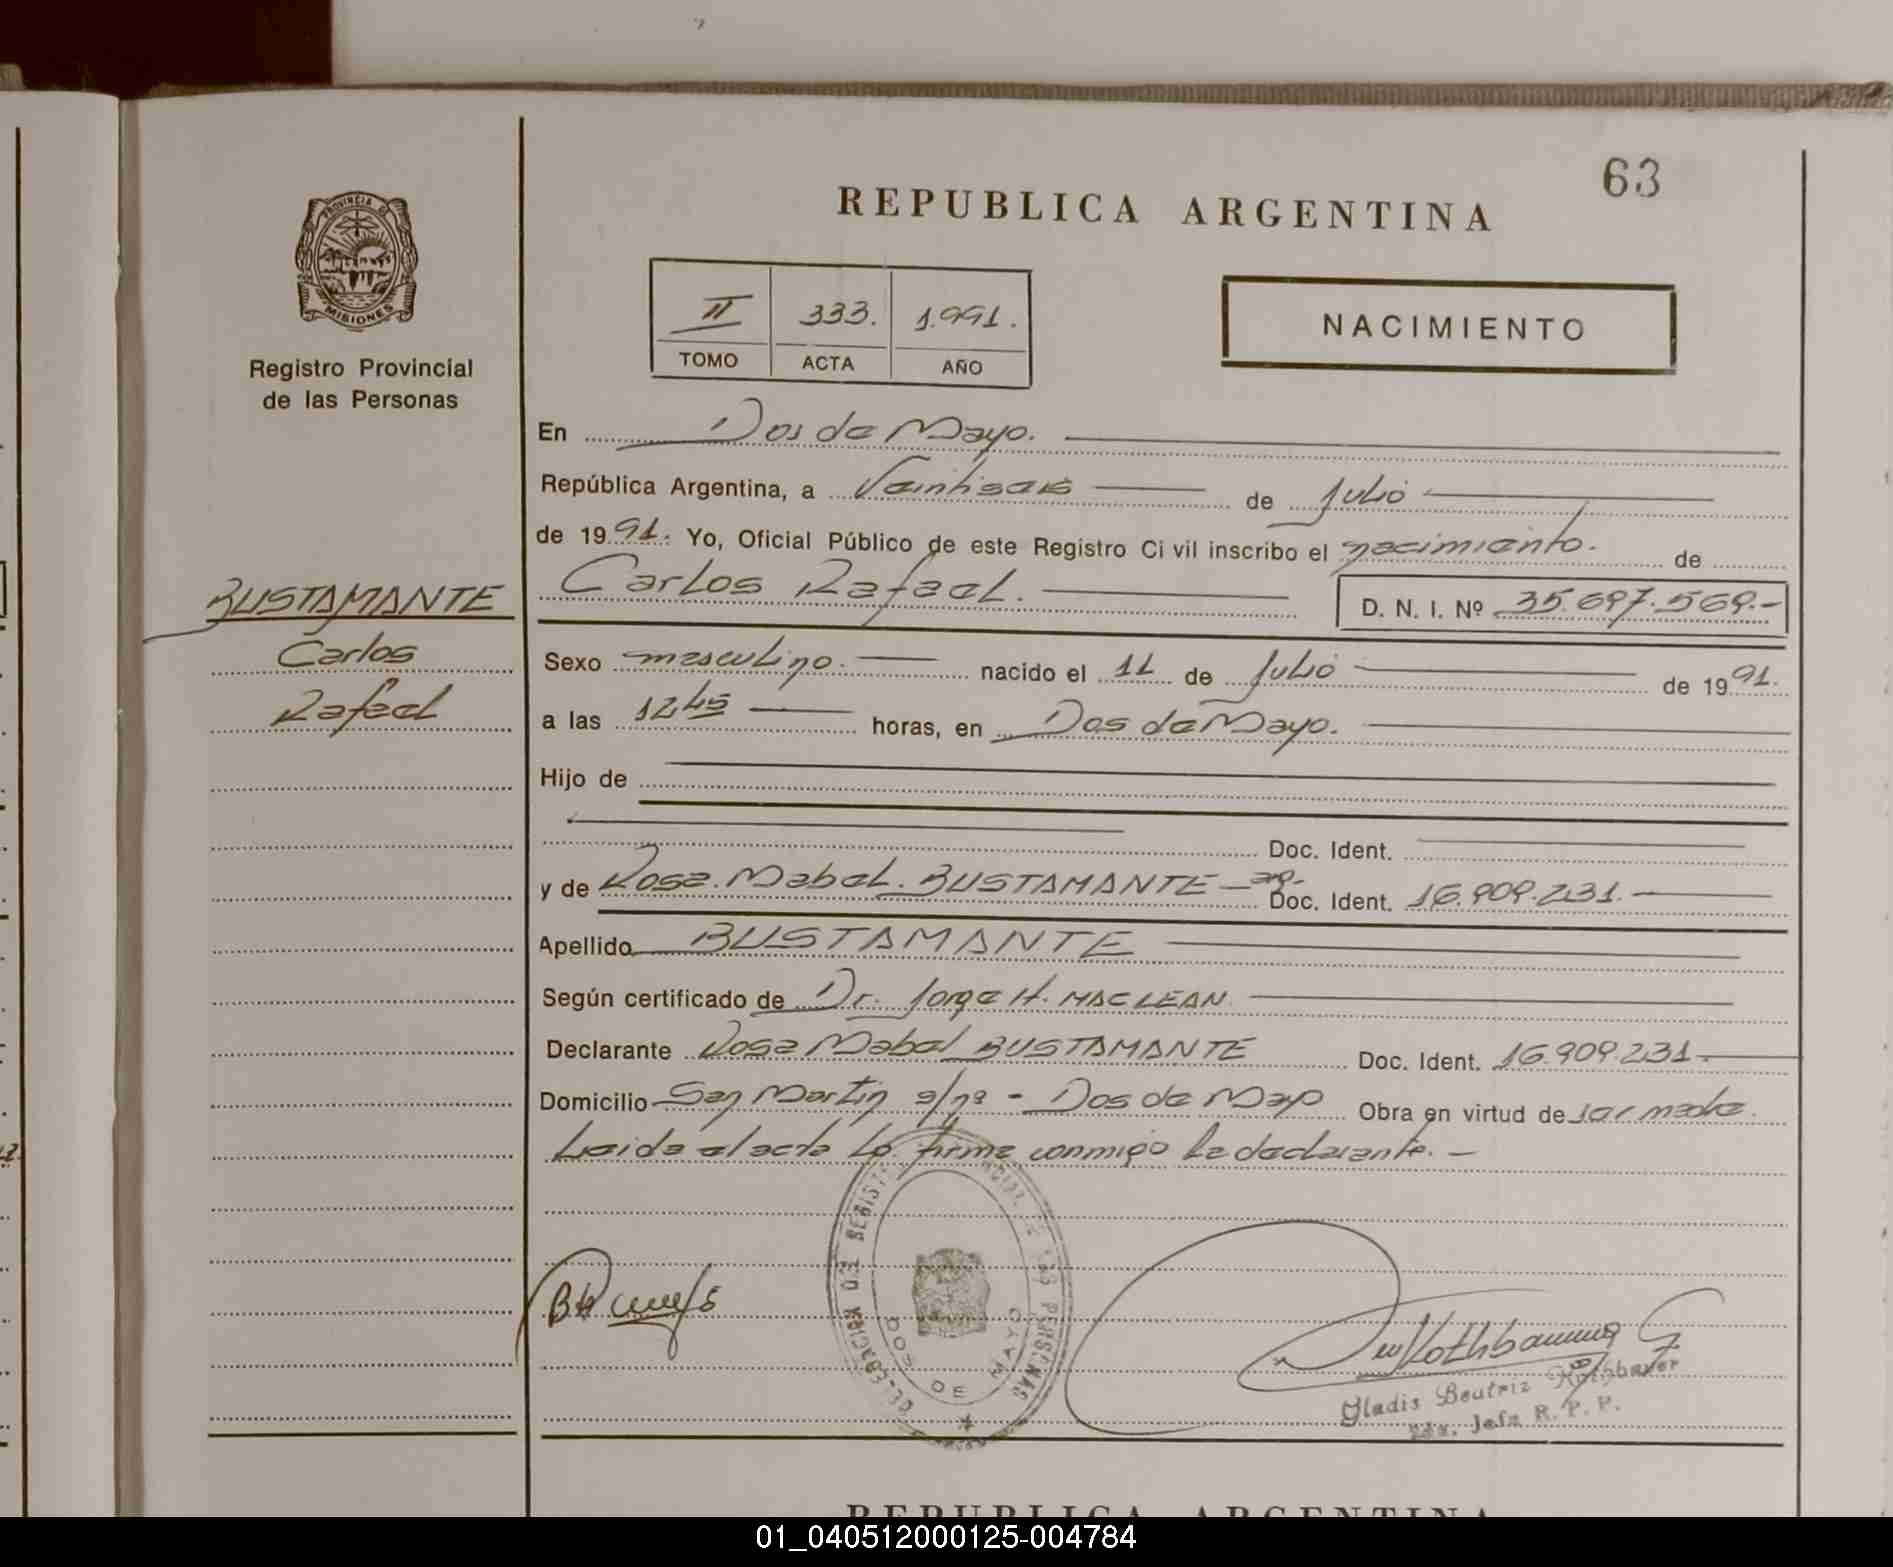 63
REPUBLICA ARGENTINA
PROVINCIA DE
MISIONES
Registro Provincial
de las Personas
II 333. 1.991.
TOMO ACTA AÑO
NACIMIENTO
En Dos de Mayo.
República Argentina, a Veintiseis de Julio
de 1991. Yo, Oficial Público de este Registro Civil inscribo el nacimiento. de
BUSTAMANTE
Carlos
Rafael
Carlos Rafael. D. N. I. Nº 35.697.569.-
Sexo masculino. nacido el 11 de Julio de 1991.
a las 12,45 horas, en Dos de Mayo.
Hijo de
Doc. Ident.
y de Rosa Mabel. BUSTAMANTE - arg. Doc. Ident. 16.909.231.-
Apellido BUSTAMANTE
Según certificado de Dr. Jorge H. MAC LEAN.
Declarante Rosa Mabel BUSTAMANTE Doc. Ident. 16.909.231.-
Domicilio San Martin s/nº - Dos de Mayo Obra en virtud de ser madre.
Leida el acta la firma conmigo la declarante. -
DOS DE MAYO
Gladis Beatriz Rothbauer
Jefa R. P. P.
REPUBLICA ARGENTINA
01_040512000125-004784